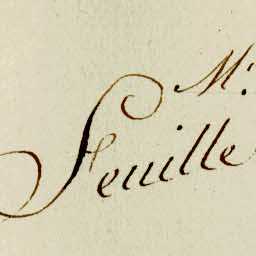 M.
Feuille